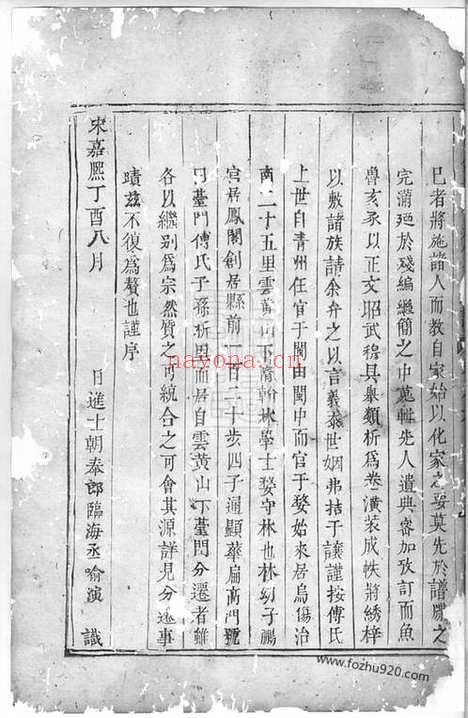 巳者將施諸人而教自家始以化家之要莫先於譜牒之
完蒲廼於殘編繼簡之中蒐輯先人遺典審加攷訂而魚
魯亥豕以正文昭武穆具舉類析為卷潢裝成帙將綉梓
以敷諸族請余弁之以言義忝世姻弗拮于讓謹按傅氏
上世自青州任官于閩由閩中官于婺始來居烏傷治
南二十五里雲黃山下隋翰林學士婺守林也林幼子鵬
官居鳳閣創居縣前一百二十步四子遍顯華扁高門號
曰臺門傅氏子孫析因而居自雲黃山下臺門分遷者雖
各以繼别為宗然質之可統合之可會其源詳見分遷事
蹟茲不復為贅也謹序
宋嘉熈丁酉八月
日進士朝奉郎臨海丞喻演 識
nayona.cn
www.fozhu920.com